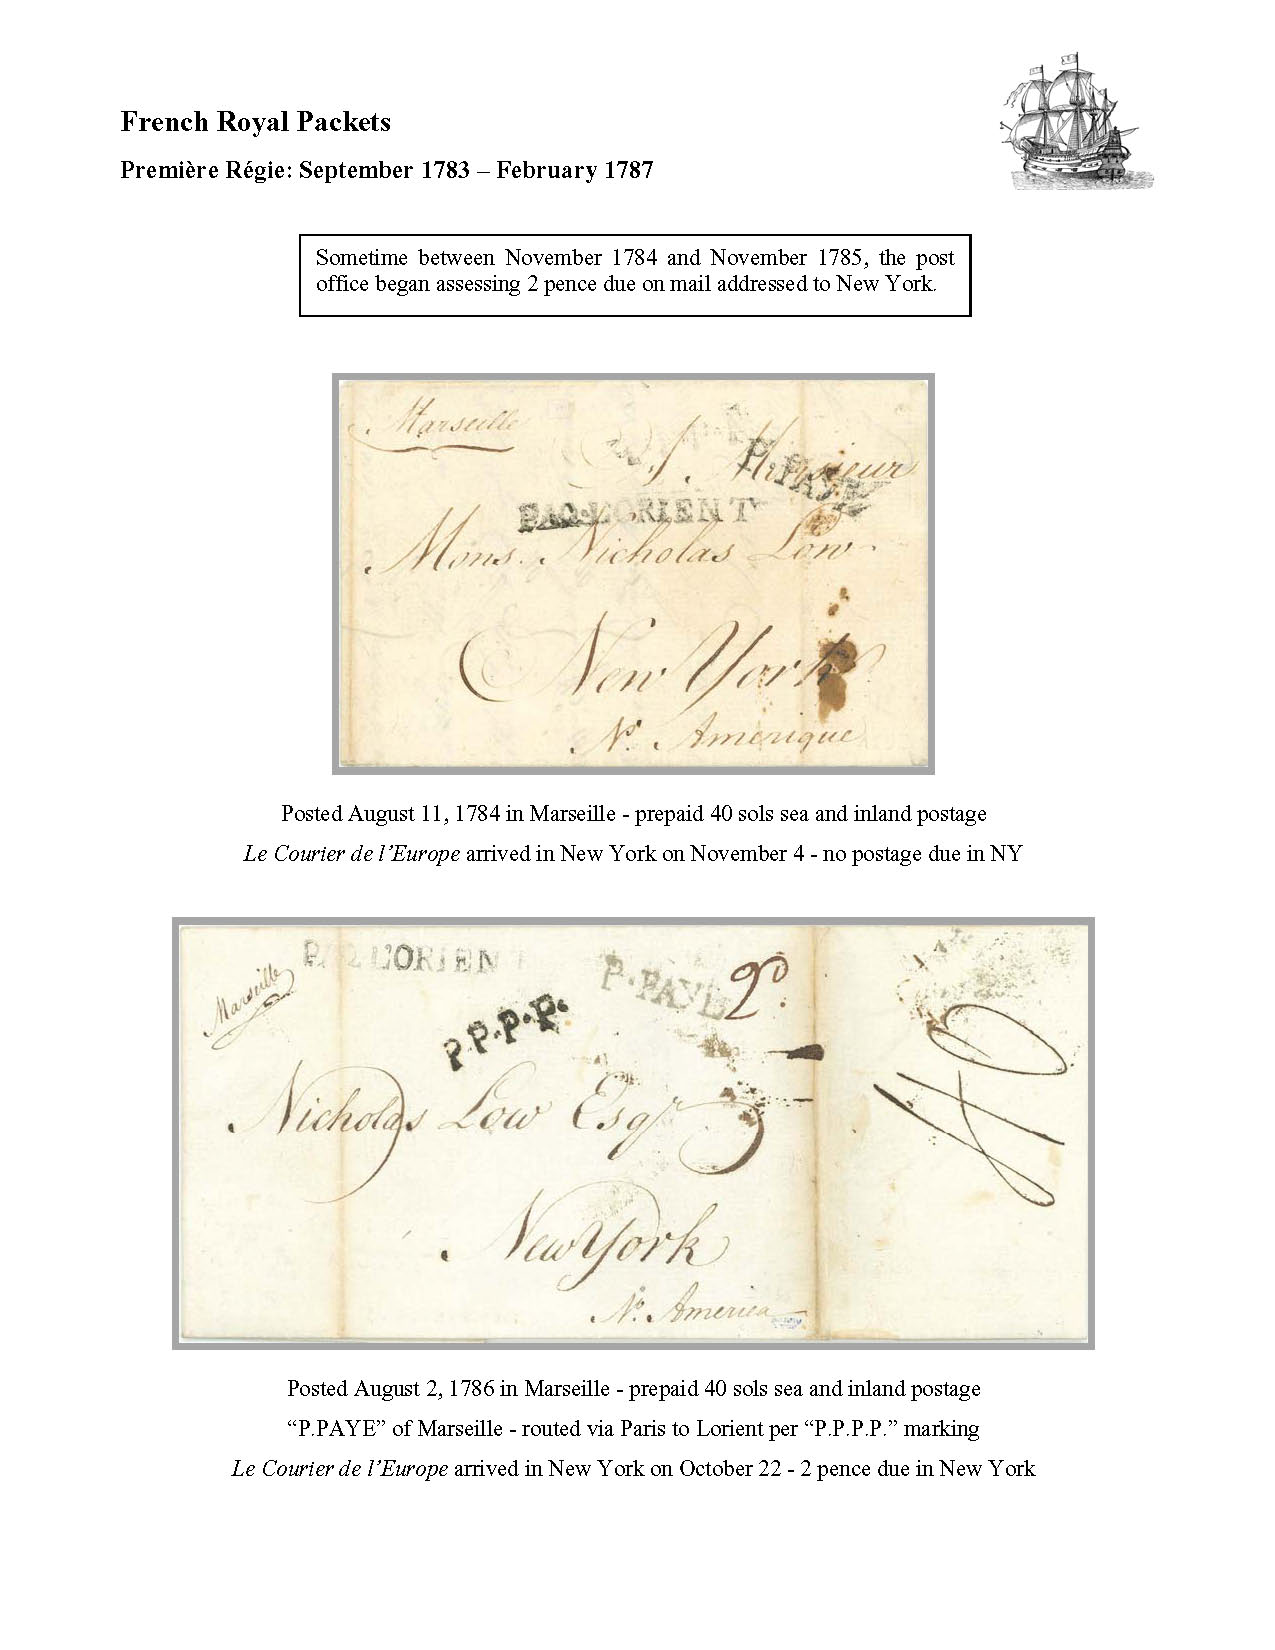 French Royal Packets
Première Régie: September 1783 – February 1787
Sometime between November 1784 and November 1785, the post
office began assessing 2 pence due on mail addressed to New York.
Marseille
A Monsieur
P.PAYE
PAQ.L'ORIENT
Mons. Nicholas Low
New York
No. Amerique
Posted August 11, 1784 in Marseille - prepaid 40 sols sea and inland postage
Le Courier de l’Europe arrived in New York on November 4 - no postage due in NY
PAQ L'ORIENT
P.PAYE
2d
Marseille
P.P.P.P.
40
Nicholas Low Esqr
New York
No. America
Posted August 2, 1786 in Marseille - prepaid 40 sols sea and inland postage
“P.PAYE” of Marseille - routed via Paris to Lorient per “P.P.P.P.” marking
Le Courier de l’Europe arrived in New York on October 22 - 2 pence due in New York